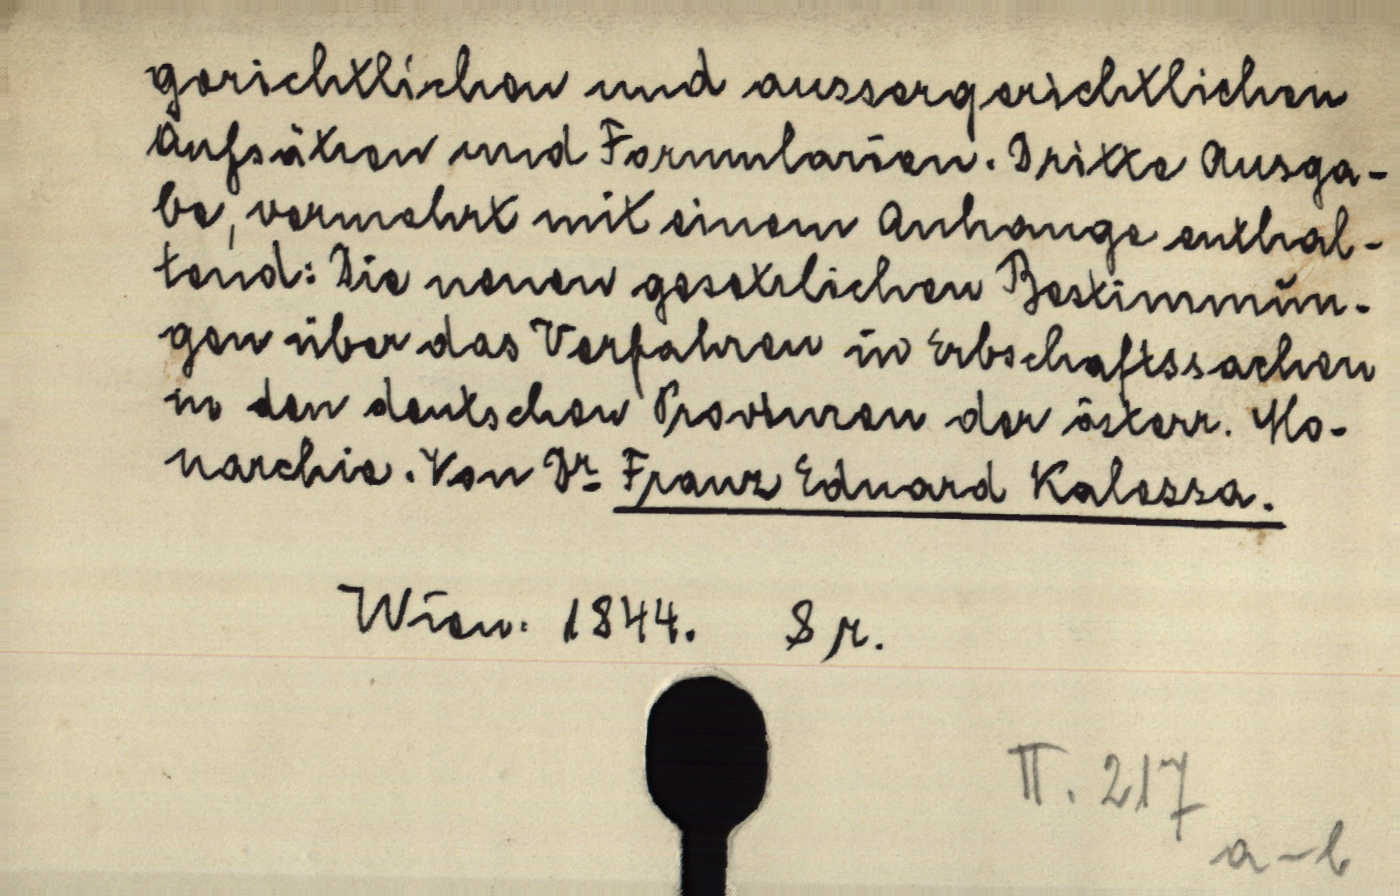 gerichtlichen und aussergerichtlichen
Aufsätzen und Formularien. Dritte Ausga-
be, vermehrt mit einem Anhange enthal-
tend: Die neuen gesetzlichen Bestimmun-
gen über das Verfahren in Erbschaftssachen
in den deutschen Provinzen der österr. Mo-
narchie. Von Dr Franz Eduard Kalessa.
Wien. 1844. 8 r.
II. 217
a-b